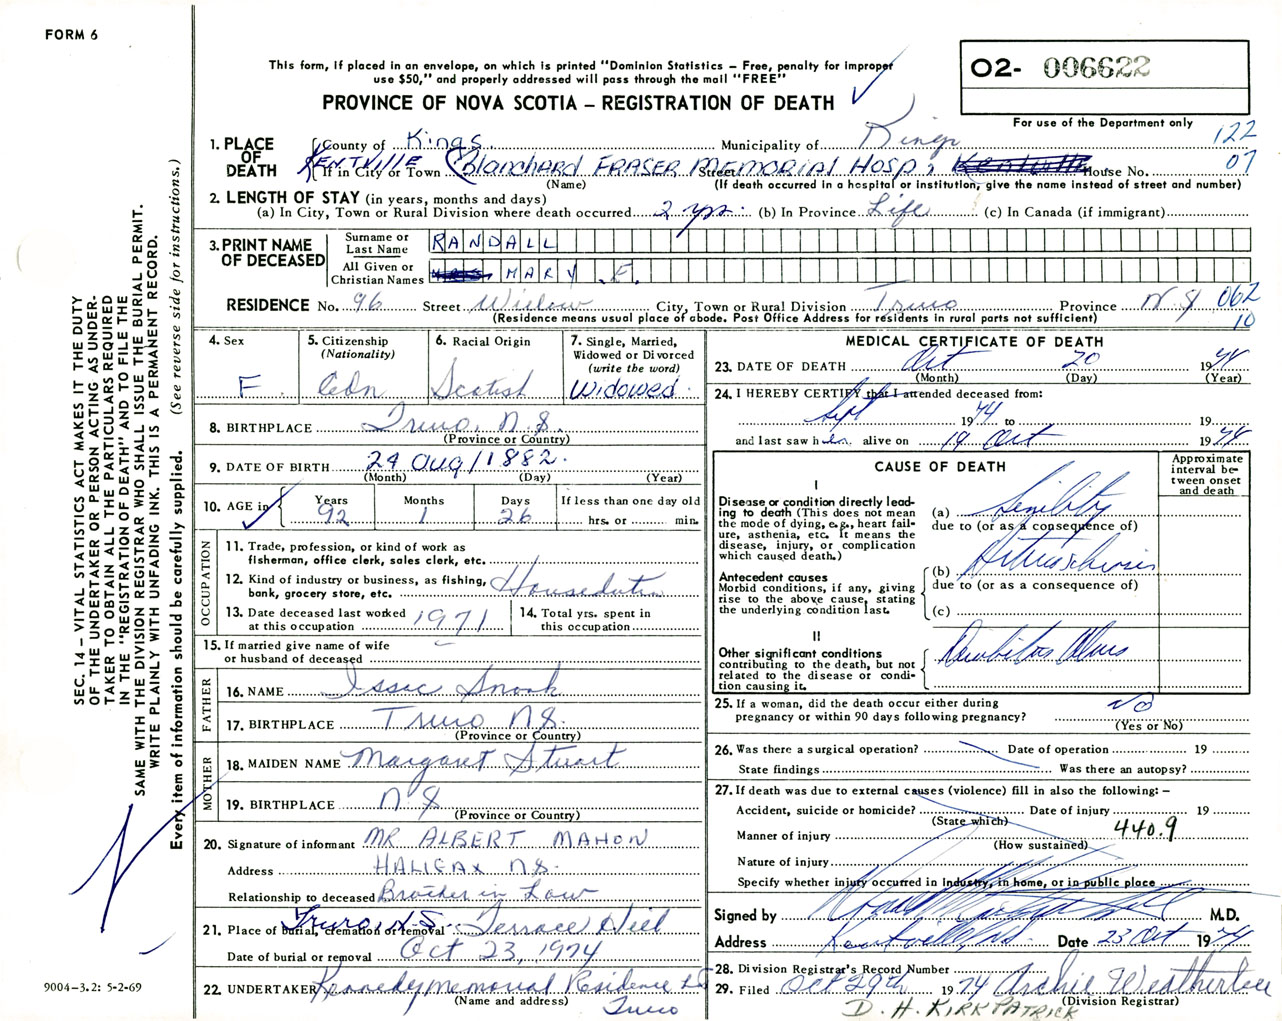 FORM 6
This form, if placed in an envelope, on which is printed "Dominion Statistics – Free, penalty for improper
use $50," and properly addressed will pass through the mail "FREE"
PROVINCE OF NOVA SCOTIA – REGISTRATION OF DEATH
O2- 006622
For use of the Department only
122
07
1. PLACE OF DEATH
County of Kings Municipality of Kings
KENTVILLE
If in City or Town Blanchard FRASER MEMORIAL HOSP, Street House No.
(Name) (If death occurred in a hospital or institution, give the name instead of street and number)
2. LENGTH OF STAY (in years, months and days)
(a) In City, Town or Rural Division where death occurred 2 yrs. (b) In Province Life (c) In Canada (if immigrant)
3. PRINT NAME OF DECEASED
Surname or Last Name RANDALL
All Given or Christian Names MARY E.
RESIDENCE No. 96 Street Willow City, Town or Rural Division Truro Province N S 062
10
(Residence means usual place of abode. Post Office Address for residents in rural parts not sufficient)
4. Sex F.
5. Citizenship (Nationality) Cdn
6. Racial Origin Scotish
7. Single, Married, Widowed or Divorced (write the word) Widowed
8. BIRTHPLACE Truro, N.S.
(Province or Country)
9. DATE OF BIRTH 24 Aug/1882.
(Month) (Day) (Year)
10. AGE in Years 92 Months 1 Days 26 If less than one day old hrs. or min.
OCCUPATION
11. Trade, profession, or kind of work as fisherman, office clerk, sales clerk, etc.
12. Kind of industry or business, as fishing, bank, grocery store, etc. Houseduties
13. Date deceased last worked at this occupation 1971
14. Total yrs. spent in this occupation
15. If married give name of wife or husband of deceased
FATHER
16. NAME Issac Snook
17. BIRTHPLACE Truro N.S.
(Province or Country)
MOTHER
18. MAIDEN NAME Margaret Stuart
19. BIRTHPLACE N S
(Province or Country)
20. Signature of informant MR ALBERT MAHON
Address HALIFAX N.S.
Relationship to deceased Brother in Law
21. Place of burial, cremation or removal Truro, N.S. Terrace Hill
Date of burial or removal Oct 23, 1974
22. UNDERTAKER Kennedy Memorial Residence Ld
(Name and address) Truro
MEDICAL CERTIFICATE OF DEATH
23. DATE OF DEATH Oct 20 1974
(Month) (Day) (Year)
24. I HEREBY CERTIFY that I attended deceased from:
Sept 1974 to 19
and last saw her alive on 19 Oct 1974
CAUSE OF DEATH
Approximate interval between onset and death
I
Disease or condition directly leading to death (This does not mean the mode of dying, e.g., heart failure, asthenia, etc. It means the disease, injury, or complication which caused death.)
(a) Senility
due to (or as a consequence of)
Antecedent causes
Morbid conditions, if any, giving rise to the above cause, stating the underlying condition last.
(b) Arteriosclerosis
due to (or as a consequence of)
(c)
II
Other significant conditions contributing to the death, but not related to the disease or condition causing it.
Decubitus Ulcers
25. If a woman, did the death occur either during pregnancy or within 90 days following pregnancy? No
(Yes or No)
26. Was there a surgical operation? Date of operation 19
State findings Was there an autopsy?
27. If death was due to external causes (violence) fill in also the following: –
Accident, suicide or homicide? Date of injury 19
(State which)
440.9
Manner of injury
(How sustained)
Nature of injury
Specify whether injury occurred in Industry, in home, or in public place
Signed by M.D.
Address Kentville, NS. Date 23 Oct 1974
28. Division Registrar's Record Number
29. Filed Oct 29th 1974 Archie Weatherbee
(Division Registrar)
D. H. KIRKPATRICK
SEC. 14 – VITAL STATISTICS ACT MAKES IT THE DUTY
OF THE UNDERTAKER OR PERSON ACTING AS UNDER-
TAKER TO OBTAIN ALL THE PARTICULARS REQUIRED
IN THE "REGISTRATION OF DEATH" AND TO FILE THE
SAME WITH THE DIVISION REGISTRAR WHO SHALL ISSUE THE BURIAL PERMIT.
WRITE PLAINLY WITH UNFADING INK. THIS IS A PERMANENT RECORD.
Every item of information should be carefully supplied. (See reverse side for instructions.)
9004–3.2: 5-2-69